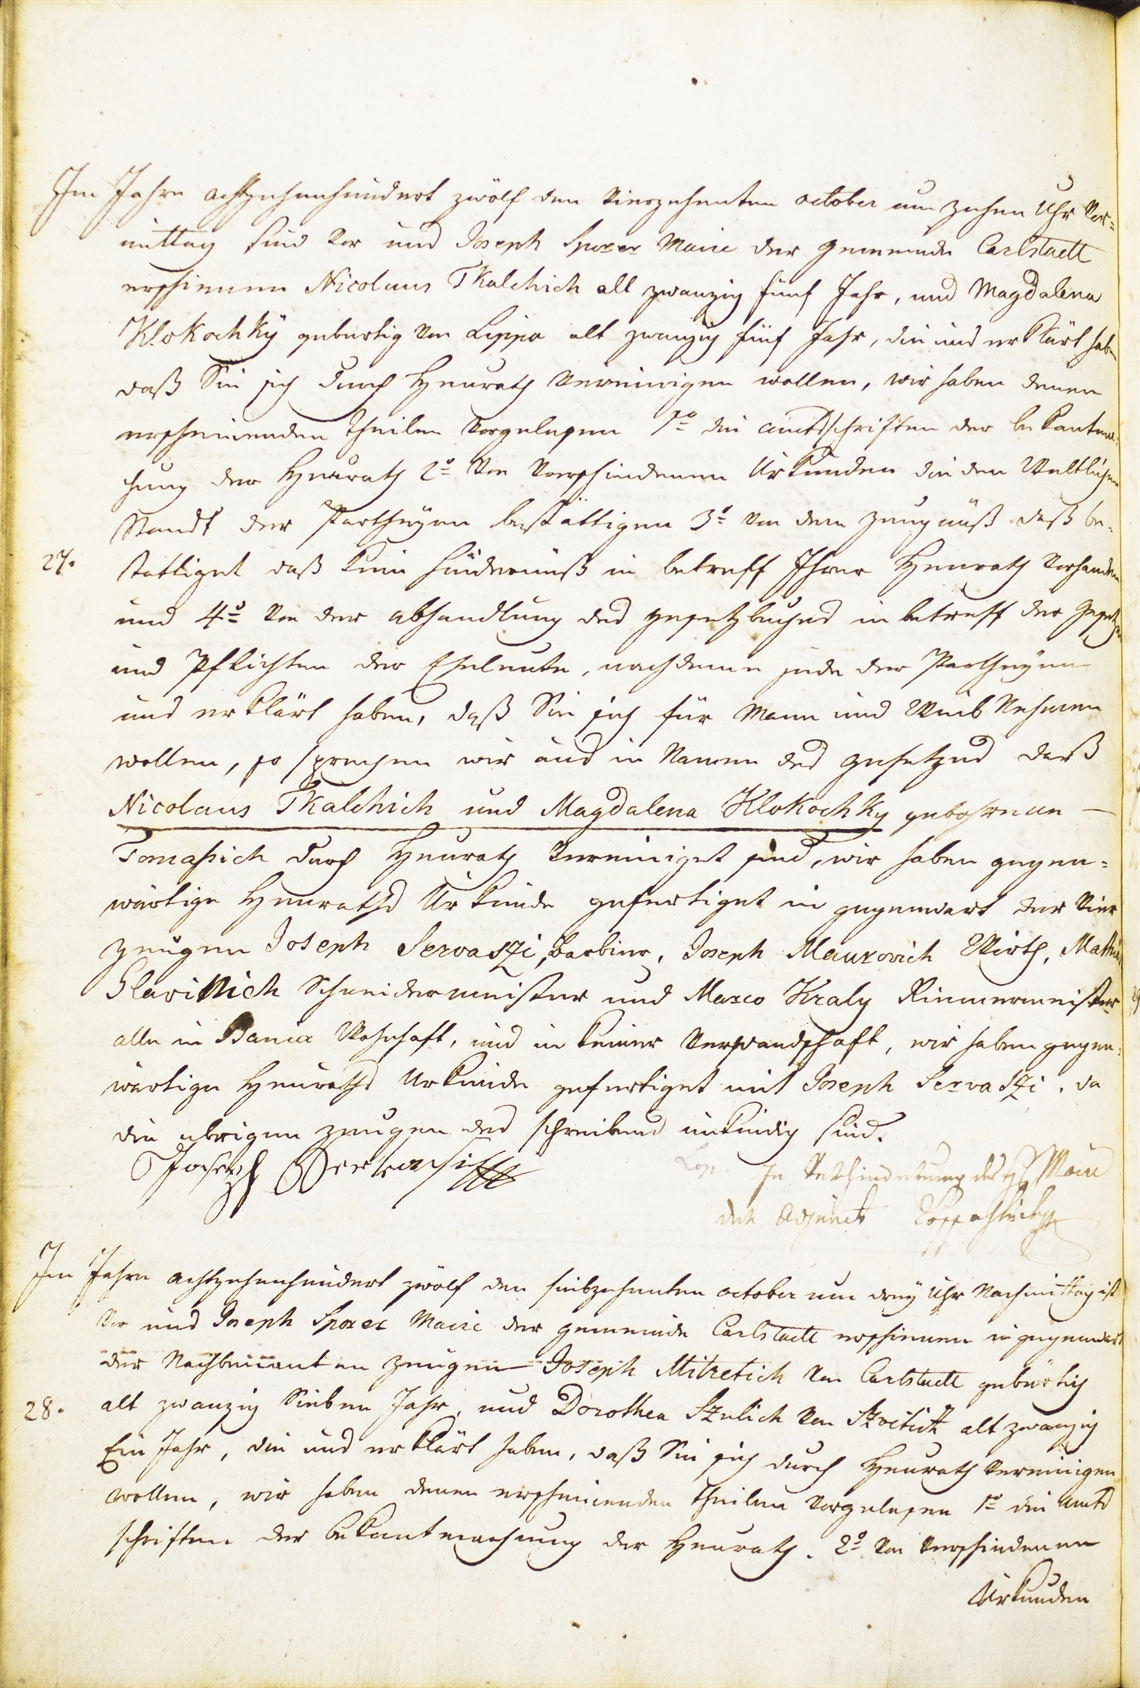 Im Jahre achtzehenhundert zwölf den Vierzehenten october um zehen Uhr Vor=
mittag sind Vor uns Joseph Sporer Maire der gemeinde Carlstadt
erschienen Nicolaus Tkalchich alt zwanzig fünf Jahr, und Magdalena
Klokochký gebürtig Von Lippa alt zwanzig fünf Jahr, die uns erklärt haben
daß Sie sich durch Heurath Vereinigen wollen, wir haben denen
erscheinenden theilen Vorgelesen 1o die amtsschriften der bekantma=
chung der Heurath 2o Von Verschiedenen Urkunden die den Weltlichen
Standt der Partheyen bestättigen 3o Von dem zeugnüß daß be=
27. stattiget daß kein hinderniß in betreff Ihrer Heurath Vorhanden
und 4o Von der abhandlung des gesetzbuches in betreff der gesetze
und Pflichten der Eheleute, nachdeme jede der Partheyen
uns erklärt haben, daß Sie sich für Mann und Weib Nehmen
wollen, so sprechen wir aus in Namen des gesetzes daß
Nicolaus Tkalchich und Magdalena Klokochky gebohrne
Tomaßich durch Heurath Vereiniget sind, wir haben gegen=
wärtige Heuraths Urkunde gefertiget in gegenwart der Vier
zeugen Joseph Servaszi, barbier, Joseph Maurovich Wirth, Mathias
Glavinich Schneidermeister und Marco Kraly Riemermeister
alle in Bania Wohnhaft, und in keiner Verwandschaft, wir haben gegen=
wärtige Heuraths Urkunde gefertiget mit Joseph Servaszi, da
die ubrigen zeugen des schreibens unkündig sind.
Joseph Servasi
In Verhinderung des H Maire
der Adjunct
Im Jahre achtzehenhundert zwölf den siebzehenten october um drey Uhr Nachmittag ist
Vor uns Joseph Sporer Maire der gemeinde Carlstadt erschienen in gegenwart
der Nachbenanten zeugen Joseph Mitretich Von Carlstadt gebürtig
28. alt zwanzig Sieben Jahr, und Dorothea Szulich Von Szvitich alt zwanzig
Ein Jahr, die uns erklärt haben, daß Sie sich durch Heurath Vereinigen
wollen, wir haben denen erscheinenden theilen Vorgelesen 1o die amts
schriften der bekantmachung der Heurath. 2o Von Verschiedenen
Urkunden